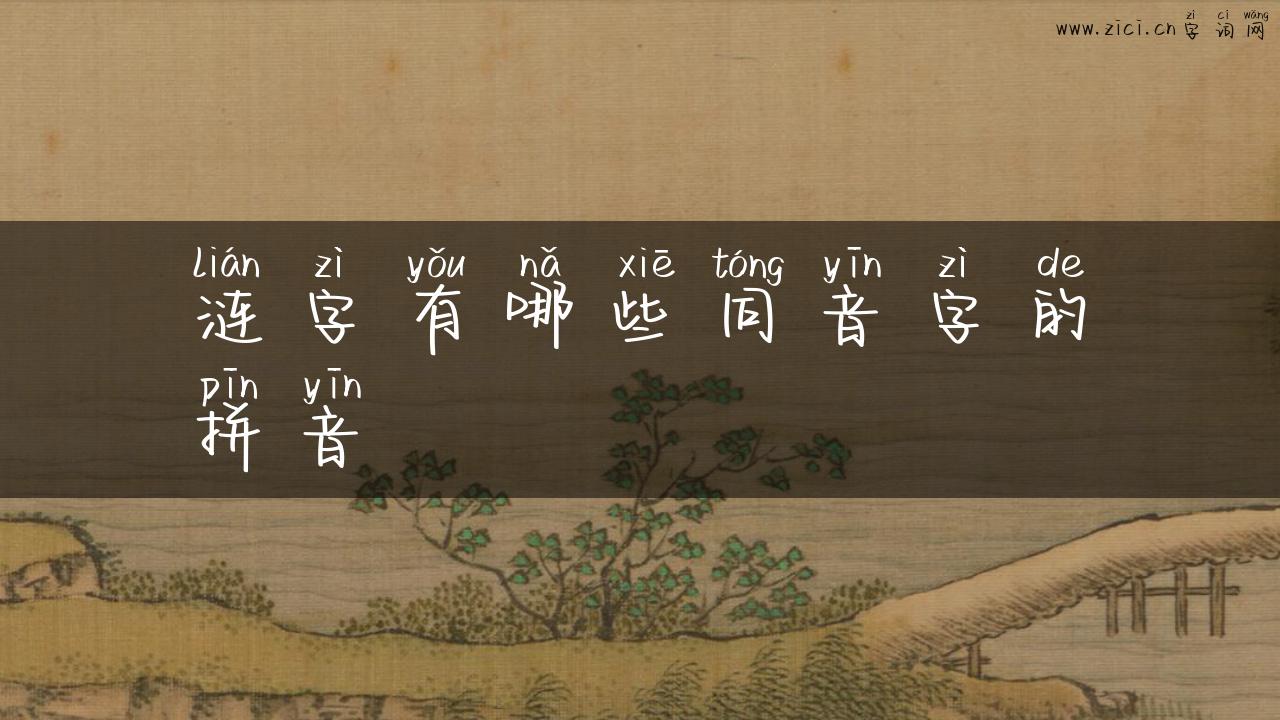 zì cí wǎng
www.zici.cn 字词网
lián zì yǒu nǎ xiē tóng yīn zì de
涟字有哪些同音字的
pīn yīn
拼音